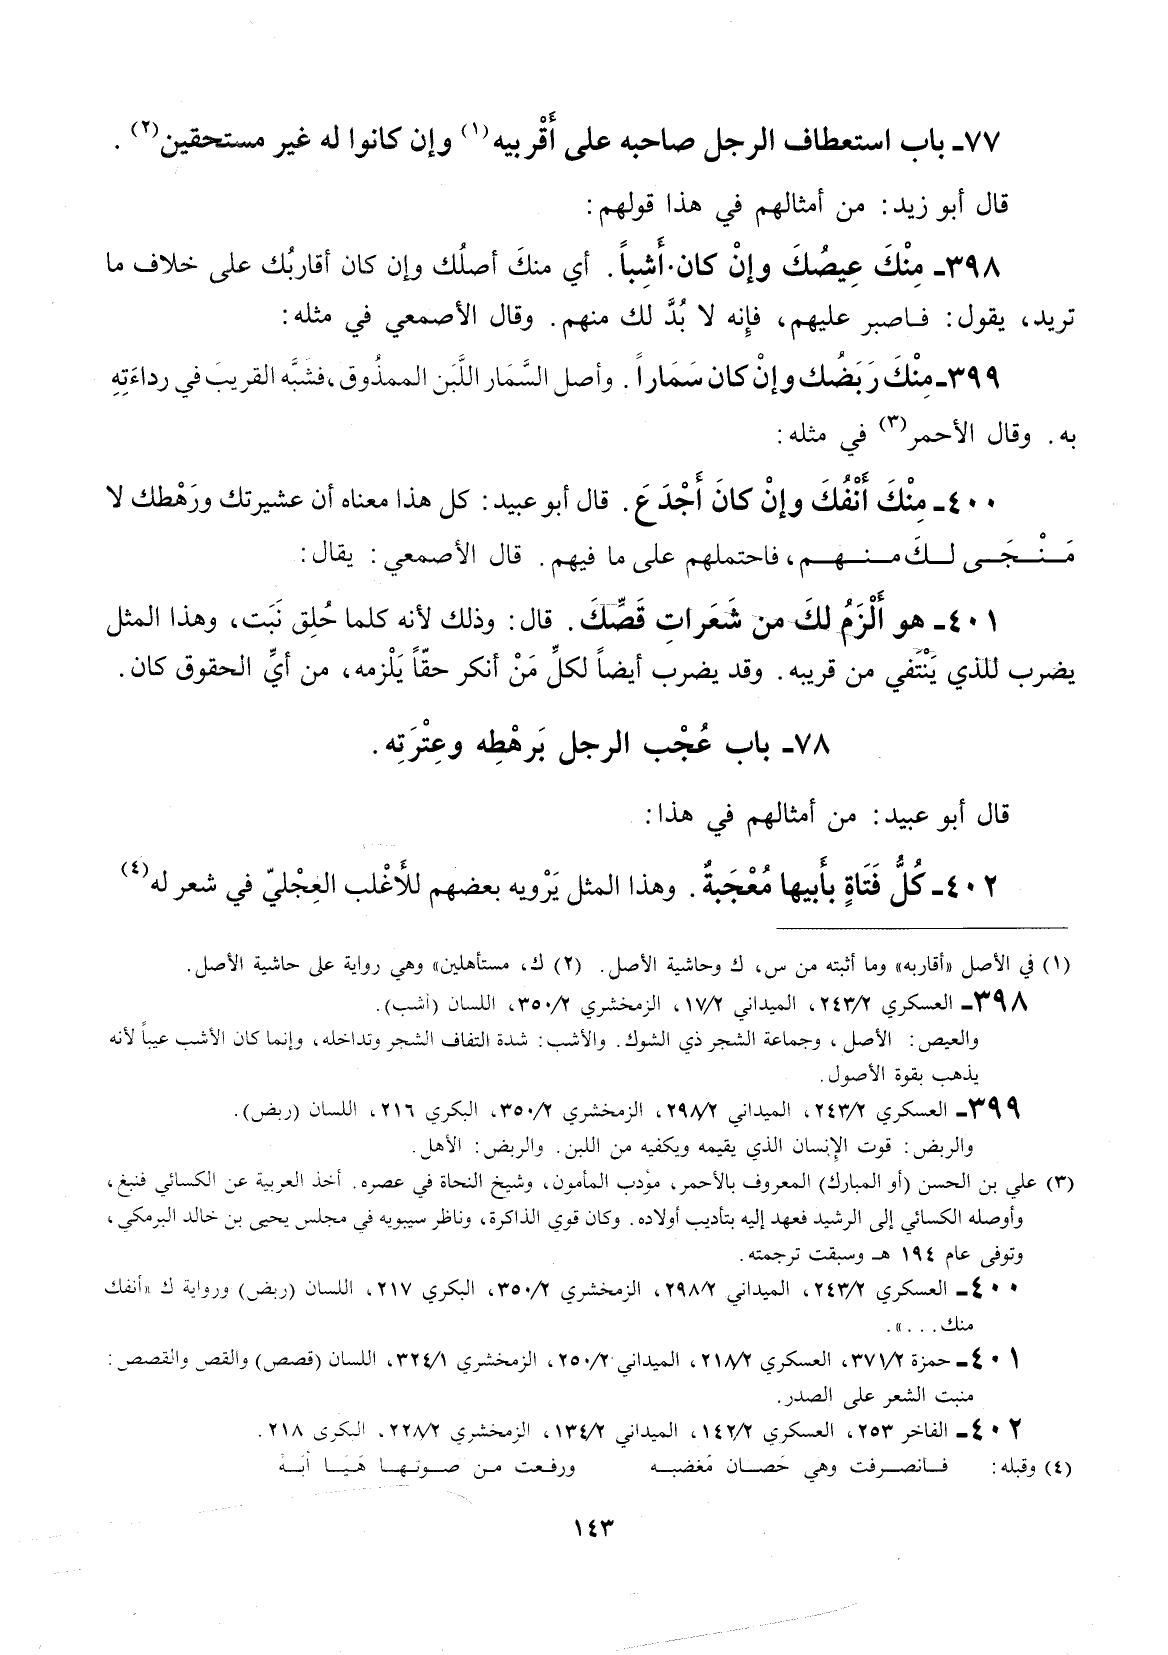 ٧٧ـ باب استعطاف الرجل صاحبه على أَقْربيه(١) وإن كانوا له غير مستحقين(٢).
قال أبو زيد: من أمثالهم في هذا قولهم:
٣٩٨ـ مِنْكَ عِيصُكَ وإنْ كان أَشِباً. أي منكَ أصلُك وإن كان أقاربُك على خلاف ما
تريد، يقول: فـاصبر عليهم، فإنه لا بُدَّ لك منهم. وقال الأصمعي في مثله:
٣٩٩ـ مِنْكَ رَبَضُك وإنْ كان سَمَاراً. وأصل السَّمَار اللَّبَن الممذُوق، فشبَّه القريبَ في رداءَتِهِ
به. وقال الأحمر(٣) في مثله:
٤٠٠ـ مِنْكَ أَنْفُكَ وإنْ كانَ أَجْدَعَ. قال أبو عبيد: كل هذا معناه أن عشيرتك ورَهْطك لا
مَـنْـجَـى لـك مـنـهـم، فاحتملهم على ما فيهم. قال الأصمعي: يقال:
٤٠١ـ هو أَلْزَمُ لكَ من شَعَراتِ قَصِّكَ. قال: وذلك لأنه كلما حُلِق نَبَت، وهذا المثل
يضرب للذي يَنْتَفي من قريبه. وقد يضرب أيضاً لكلِّ مَنْ أنكر حقّاً يَلْزمه، من أيِّ الحقوق كان.
٧٨ـ باب عُجْب الرجل بَرهْطِه وعِتْرَتِه.
قال أبو عبيد: من أمثالهم في هذا:
٤٠٢ـ كُلُّ فَتَاةٍ بأَبيها مُعْجَبةٌ. وهذا المثل يَرْويه بعضهم للأَغْلب العِجْليّ في شعر له(٤)
(١) في الأصل «أقاربه» وما أثبته من س، ك وحاشية الأصل. (٢) ك، مستأهلين» وهي رواية على حاشية الأصل.
٣٩٨ـ العسكري ٢٤٣/٢، الميداني ١٧/٢، الزمخشري ٣٥٠/٢، اللسان (أشب).
والعيص: الأصل، وجماعة الشجر ذي الشوك. والأشب: شدة التفاف الشجر وتداخله، وإنما كان الأشب عيباً لأنه
يذهب بقوة الأصول.
٣٩٩ـ العسكري ٢٤٣/٢، الميداني ٢٩٨/٢، الزمخشري ٣٥٠/٢، البكري ٢١٦، اللسان (ربض).
والربض: قوت الإنسان الذي يقيمه ويكفيه من اللبن. والربض: الأهل.
(٣) علي بن الحسن (أو المبارك) المعروف بالأحمر، مؤدب المأمون، وشيخ النحاة في عصره. أخذ العربية عن الكسائي فنبغ،
وأوصله الكسائي إلى الرشيد فعهد إليه بتأديب أولاده. وكان قوي الذاكرة، وناظر سيبويه في مجلس يحيى بن خالد البرمكي،
وتوفى عام ١٩٤ هـ وسبقت ترجمته.
٤٠٠ـ العسكري ٢٤٣/٢، الميداني ٢٩٨/٢، الزمخشري ٣٥٠/٢، البكري ٢١٧، اللسان (ربض) ورواية ك «أنفك
منك...».
٤٠١ـ حمزة ٣٧١/٢، العسكري ٢١٨/٢، الميداني ٢٥٠/٢، الزمخشري ٣٢٤/١، اللسان (قصص) والقص والقصص:
منبت الشعر على الصدر.
٤٠٢ـ الفاخر ٢٥٣، العسكري ١٤٢/٢، الميداني ١٣٤/٢، الزمخشري ٢٢٨/٢، البكرى ٢١٨.
(٤) وقبله: فـانصـرفت وهي حَصـان مُغضبـه ورفـعت مـن صـوتـهـا هَـيَـا أبَـهْ
١٤٣